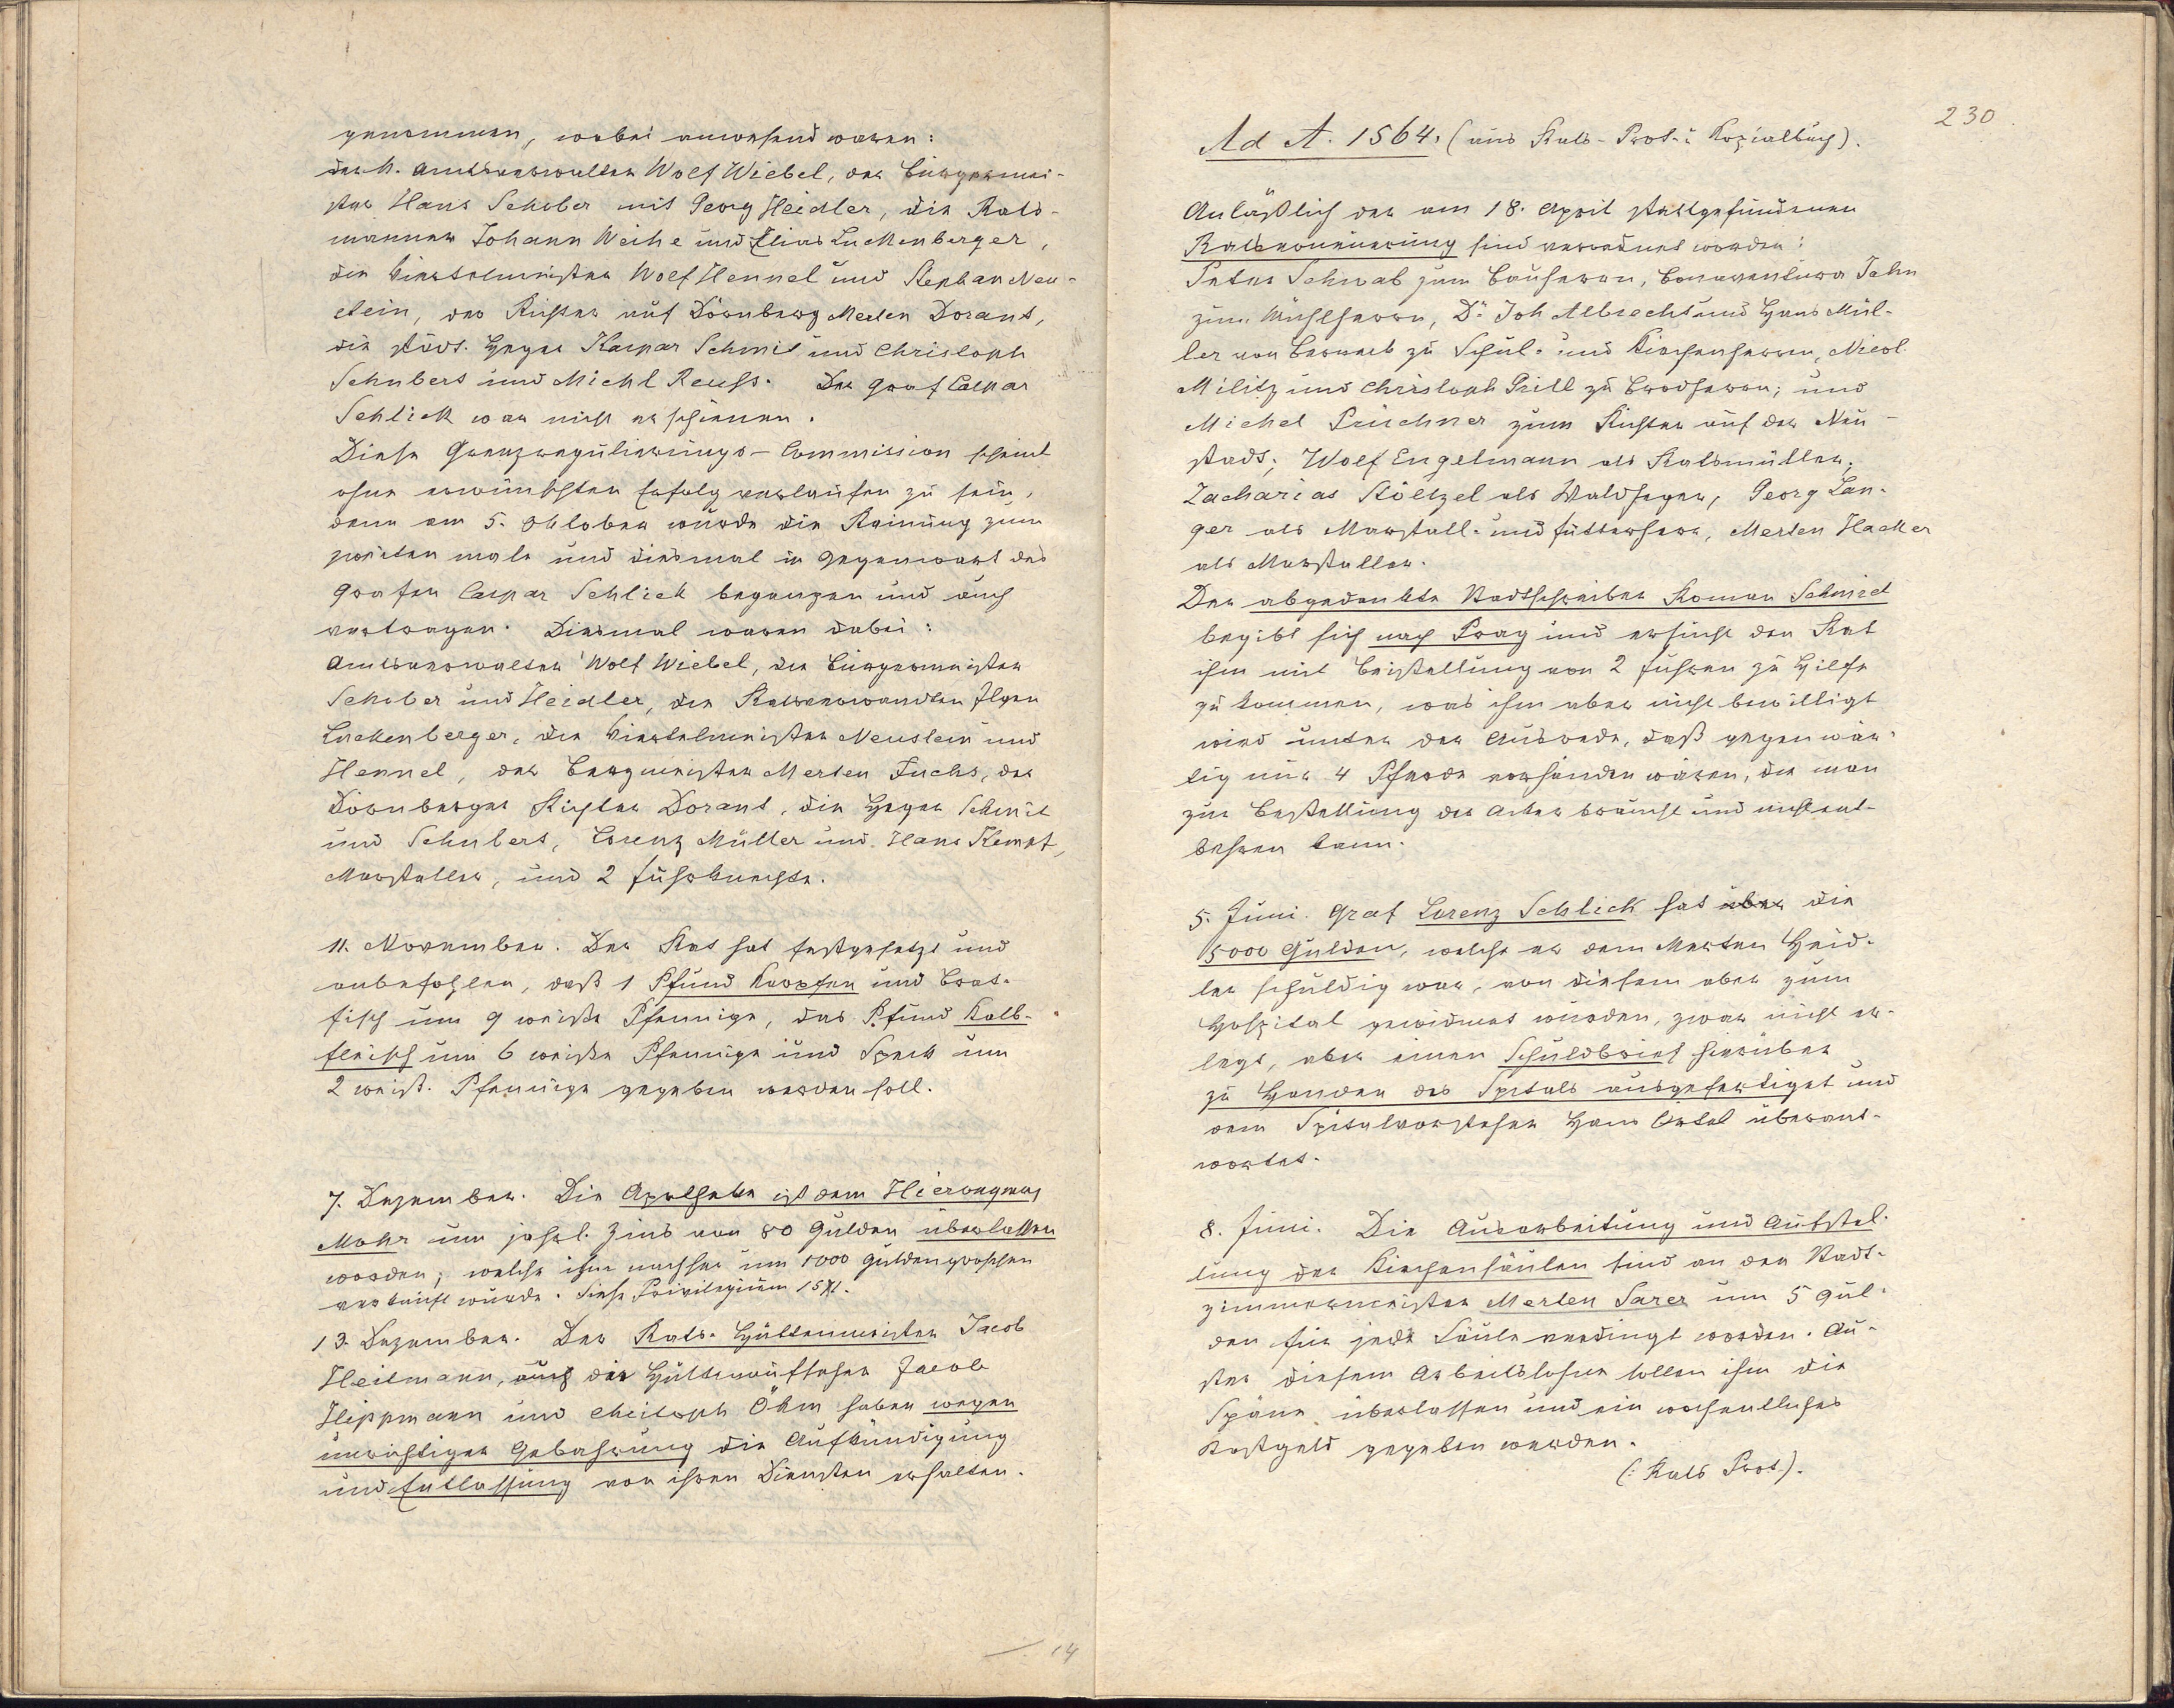 genommen, wobei anwesend waren:
der k. Amtsverwalter Wolf Wiebel, der Bürgermei-
ster Hans Schober mit Georg Heidler, die Rats-
manner Johann Weihe und Elias Luckenberger,
die Viertelmeister Wolf Hennel und Stephan Neu-
stein, der Richter auf Dörnberg Merten Dorant,
die städt. Heger Kaspar Schmit und Christoph
Schubert und Michl Reuss. Der Graf Caspar
Schlick war nicht erschienen.
Diese Grenzregulierungs-Commission scheint
ohne erwünschten Erfolg verlaufen zu sein,
denn am 5. Oktober wurde die Rainung zum
zweiten male und diesmal in Gegenwart des
Grafen Caspar Schlick begangen und auch
vertragen. Diesmal waren dabei:
Amtsverwalter Wolf Wiebel, die Bürgermeister
Schober und Heidler, die Ratsverwandten Ilgen
Luckenberger, die Viertelmeister Neustein und
Hennel, der Bergmeister Merten Fuchs, der
Dörnberger Richter Dorant, die Heger Schmit
und Schubert, Lorenz Müller und Hans Kempf,
Marstaller, und 2 Fuhrknechte.
11. November. Der Rat hat festgesetzt und
anbefohlen, daß 1 Pfund Karpfen und Brat-
fisch um 9 weiße Pfennige, das Pfund Kalb-
fleisch um 6 weiße Pfennige und Speck um
2 weiß. Pfennige gegeben werden soll.
7. Dezember. Die Apotheke ist dem Hieronymus
Mohr um jährl. Zins von 80 Gulden überlassen
worden; welche ihm nachher um 1000 Guldengroschen
verkauft wurde. Siehe Privilegium 1571.
13. Dezember. Der Rats-Hüttenmeister Jacob
Heilmann, auch die Hüttenaufseher Jacob
Hippmann und Christoph Öhm haben wegen
unrichtiger Gebahrung die Aufkündigung
und Entlassung von ihren Diensten erhalten.
14
230
Ad A. 1564. (aus Rats-Prot. u Kopialbuch).
Anläßlich der am 18. April stattgefundenen
Ratserneuerung sind verordnet worden:
Peter Schwab zum Bauherrn, Bonaventura Jahn
zum Mühlherrn, Dr Joh Albrecht und Hans Mül-
ler von Berneck zu Schul- und Kirchenherrn, Nicol
Militz und Christoph Prill zu Brodherrn; und
Michel Prüchner zum Richter auf der Neu-
stadt; Wolf Engelmann als Ratsmüller;
Zacharias Stöltzel als Waldheger, Georg Lan-
ger als Marstall- und Futterherr, Merten Hacker
als Marstaller.
Der abgedankte Stadtschreiber Roman Schmid
begibt sich nach Prag und ersucht den Rat
ihm mit Beistellung von 2 Fuhren zu Hilfe
zu kommen, was ihm aber nicht bewilligt
wird unter der Ausrede, daß gegenwär-
tig nur 4 Pferde vorhanden wären, die man
zur Bestellung der Äcker braucht und nicht ent-
behren kann.
5. Juni. Graf Lorenz Schlick hat über die
5000 Gulden, welche er dem Merten Heid-
ler schuldig war, von diesem aber zum
Hospital gewidmet wurden, zwar nicht er-
legt, aber einen Schuldbrief hierüber
zu Handen des Spitals ausgefertiget und
dem Spitalvorsteher Hans Örtel überant-
wortet.
8. Juni. Die Ausarbeitung und Aufstel-
lung der Kirchensäulen sind an den Stadt-
zimmermeister Merten Sarer um 5 Gul-
den für jede Säule verdingt worden. Au-
ßer diesem Arbeitslohne sollen ihm die
Späne überlassen und ein wochentliches
Kostgeld gegeben werden.
(: Rats Prot.).